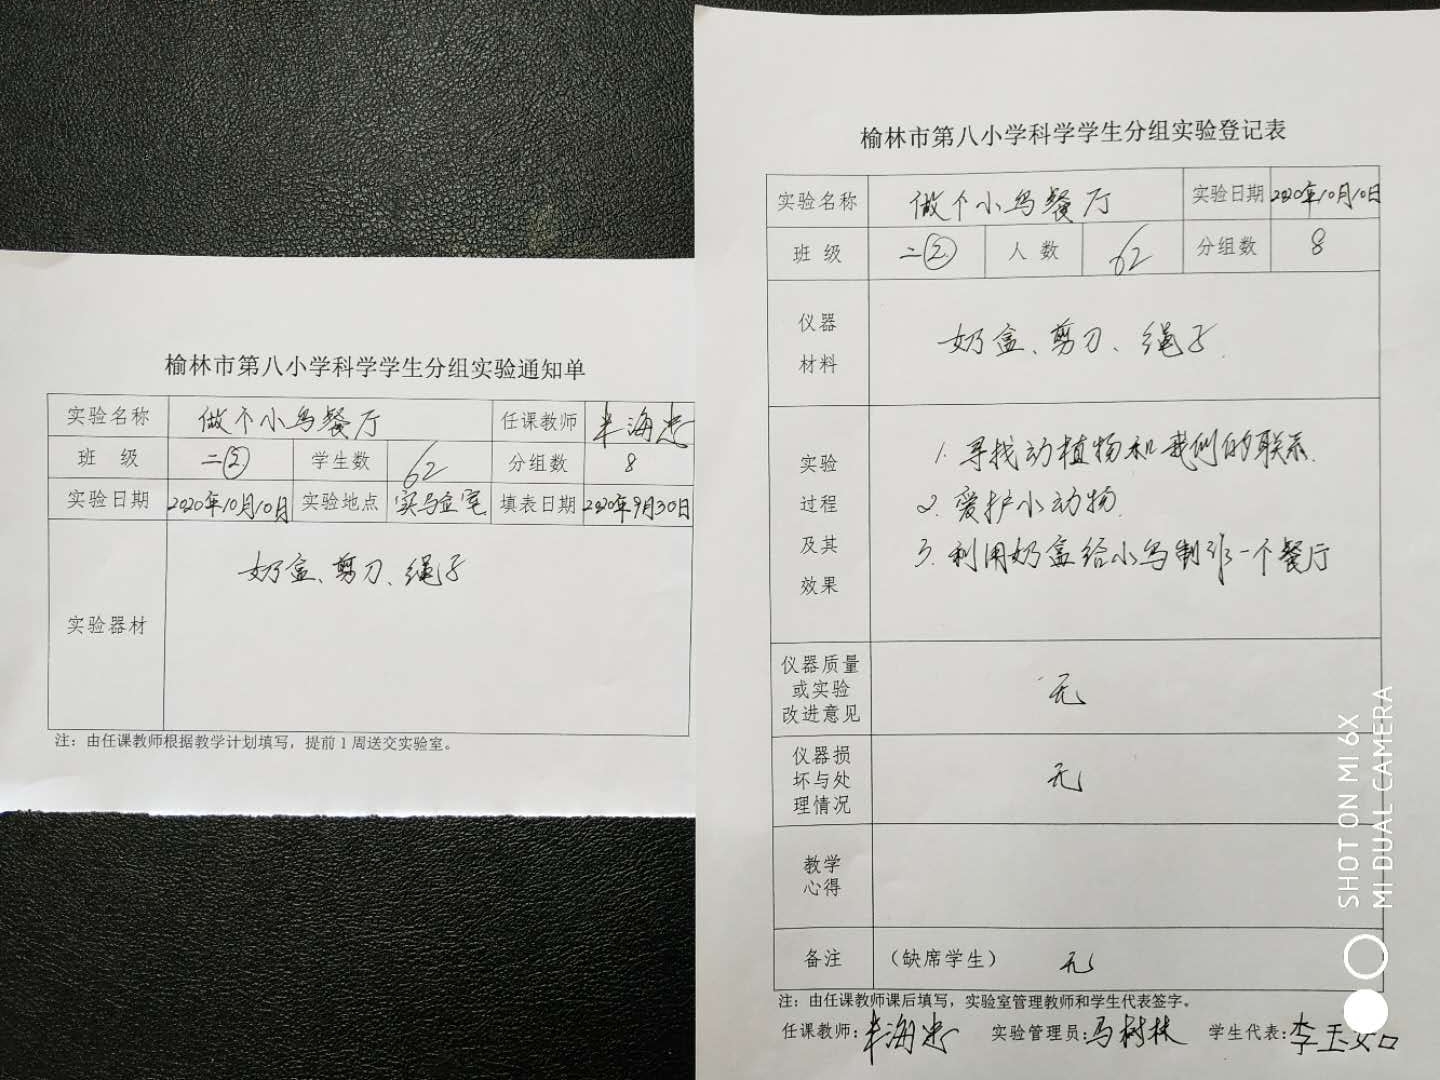 榆林市第八小学科学学生分组实验通知单
实验名称 做个小鸟餐厅 任课教师 海忠
班 级 二② 学生数 62 分组数 8
实验日期 2020年10月10日 实验地点 实验室 填表日期 2020年9月30日
实验器材 奶盒、剪刀、绳子
注：由任课教师根据教学计划填写，提前1周送交实验室。
榆林市第八小学科学学生分组实验登记表
实验名称 做个小鸟餐厅 实验日期 2020年10月10日
班 级 二② 人 数 62 分组数 8
仪器
材料
奶盒、剪刀、绳子.
实验
过程
及其
效果
1. 寻找动植物和我们的联系.
2. 爱护小动物.
3. 利用奶盒给小鸟制作一个餐厅
仪器质量
或实验
改进意见
无
仪器损
坏与处
理情况
无
教学
心得
备注 （缺席学生） 无
注：由任课教师课后填写，实验室管理教师和学生代表签字。
任课教师: 海忠 实验管理员: 马树林 学生代表: 李玉如
SHOT ON MI 6X
MI DUAL CAMERA